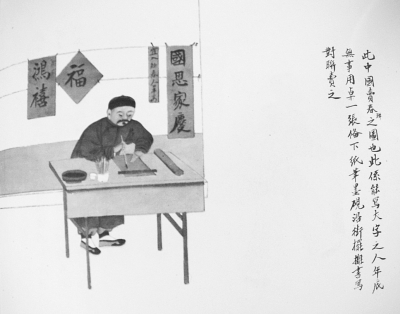 此中國賣春聯之圖也此係能寫大字之人年底
無事用桌一張俻下紙筆墨硯沿街擺攤書寫
對聯賣之
國恩家慶
福
鴻禧